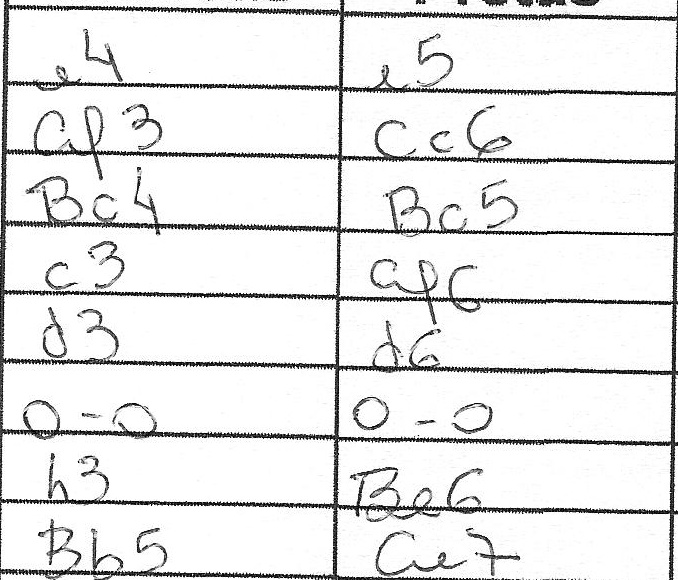 e4 e5
Cf3 Cc6
Bc4 Bc5
c3 Cf6
d3 d6
0-0 0-0
h3 Be6
Bb5 Ce7